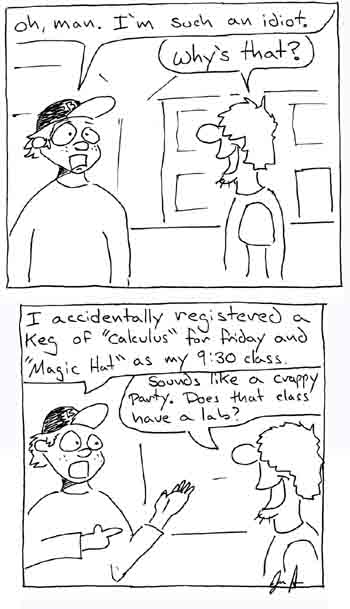 oh, man. I'm such an idiot.
Why's that?
I accidentally registered a
Keg of "Calculus" for friday and
"Magic Hat" as my 9:30 class.
Sounds like a crappy
Party. Does that class
have a lab?